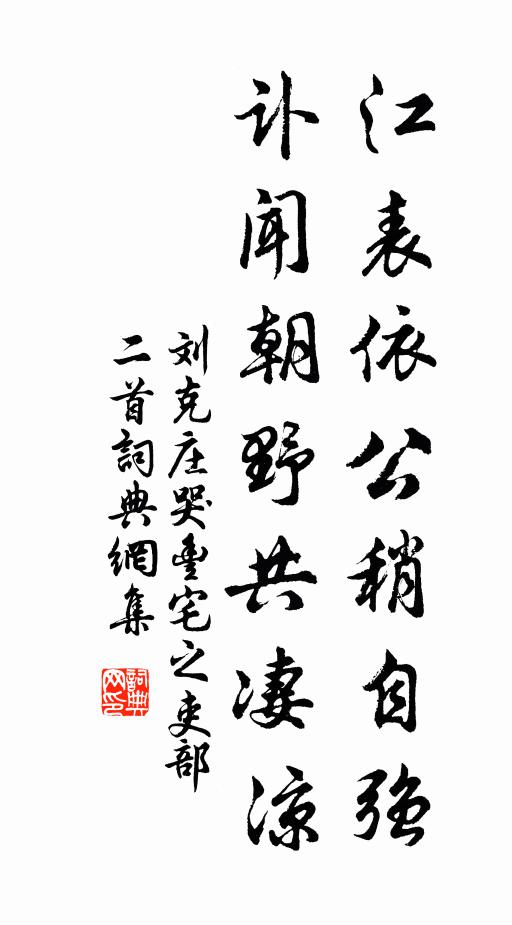 江表依公稍自強
訃聞朝野共凄涼
刘克庄哭豊宅之吏部
二首詞典網集
詞典
网印